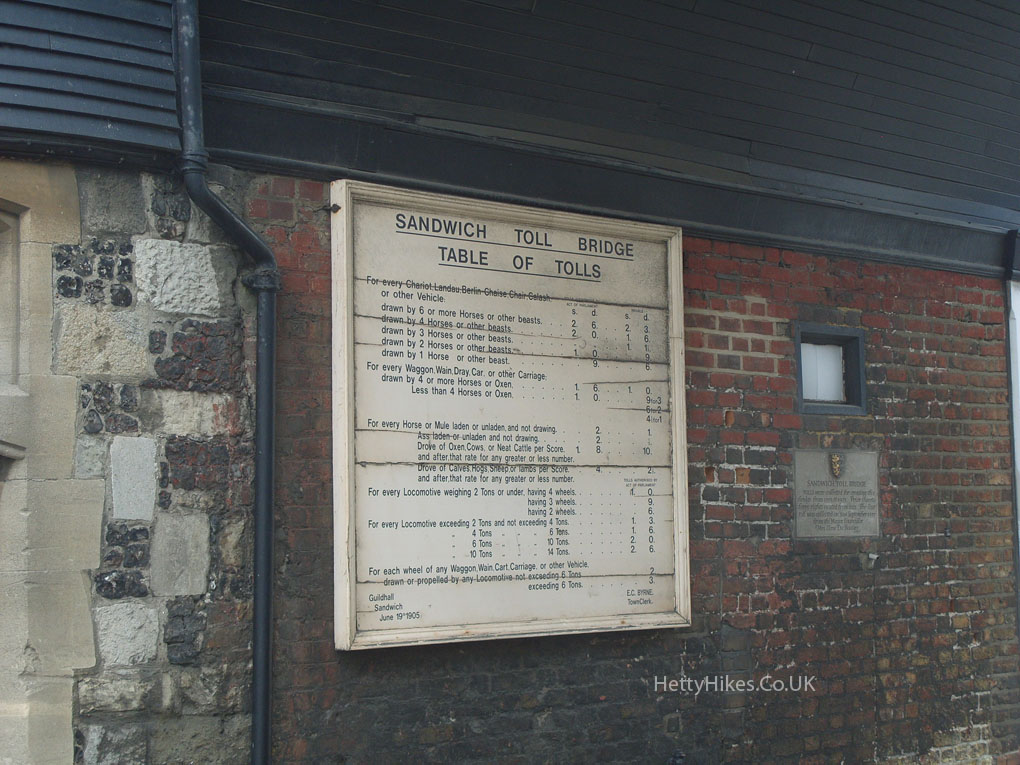 SANDWICH TOLL BRIDGE
TABLE OF TOLLS
For every Chariot, Landau, Berlin, Chaise, Chair, Calash,
or other Vehicle:
s. d. s. d.
drawn by 6 or more Horses or other beasts. 2. 6. 2. 3.
drawn by 4 Horses or other beasts. 2. 0. 1. 6.
drawn by 3 Horses or other beasts. 1. 1.
drawn by 2 Horses or other beasts. 1. 0. 9.
drawn by 1 Horse or other beast. 9. 6.
For every Waggon, Wain, Dray, Car, or other Carriage:
drawn by 4 or more Horses or Oxen. 1. 6. 1. 0.
Less than 4 Horses or Oxen. 1. 0. 9 for 3
6 for 2
4 for 1
For every Horse or Mule laden or unladen, and not drawing. 2. 1.
Ass laden or unladen and not drawing. 2.
Drove of Oxen, Cows, or Neat Cattle per Score. 1. 8. 10.
and after, that rate for any greater or less number.
Drove of Calves, Hogs, Sheep, or lambs per Score. 4. 2.
and after, that rate for any greater or less number.
TOLLS AUTHORISED BY
ACT OF PARLIAMENT
For every Locomotive weighing 2 Tons or under, having 4 wheels. 1. 0.
having 3 wheels. 9.
having 2 wheels. 6.
For every Locomotive exceeding 2 Tons and not exceeding 4 Tons. 1. 3.
" 4 Tons " " 6 Tons. 1. 6.
" 6 Tons " " 10 Tons. 2. 0.
" 10 Tons " " 14 Tons. 2. 6.
For each wheel of any Waggon, Wain, Cart, Carriage, or other Vehicle.
drawn or propelled by any Locomotive not exceeding 6 Tons 2.
exceeding 6 Tons. 3.
Guildhall
Sandwich
June 19th 1905
E.C. BYRNE.
Town Clerk.
SANDWICH TOLL BRIDGE
HettyHikes.Co.UK